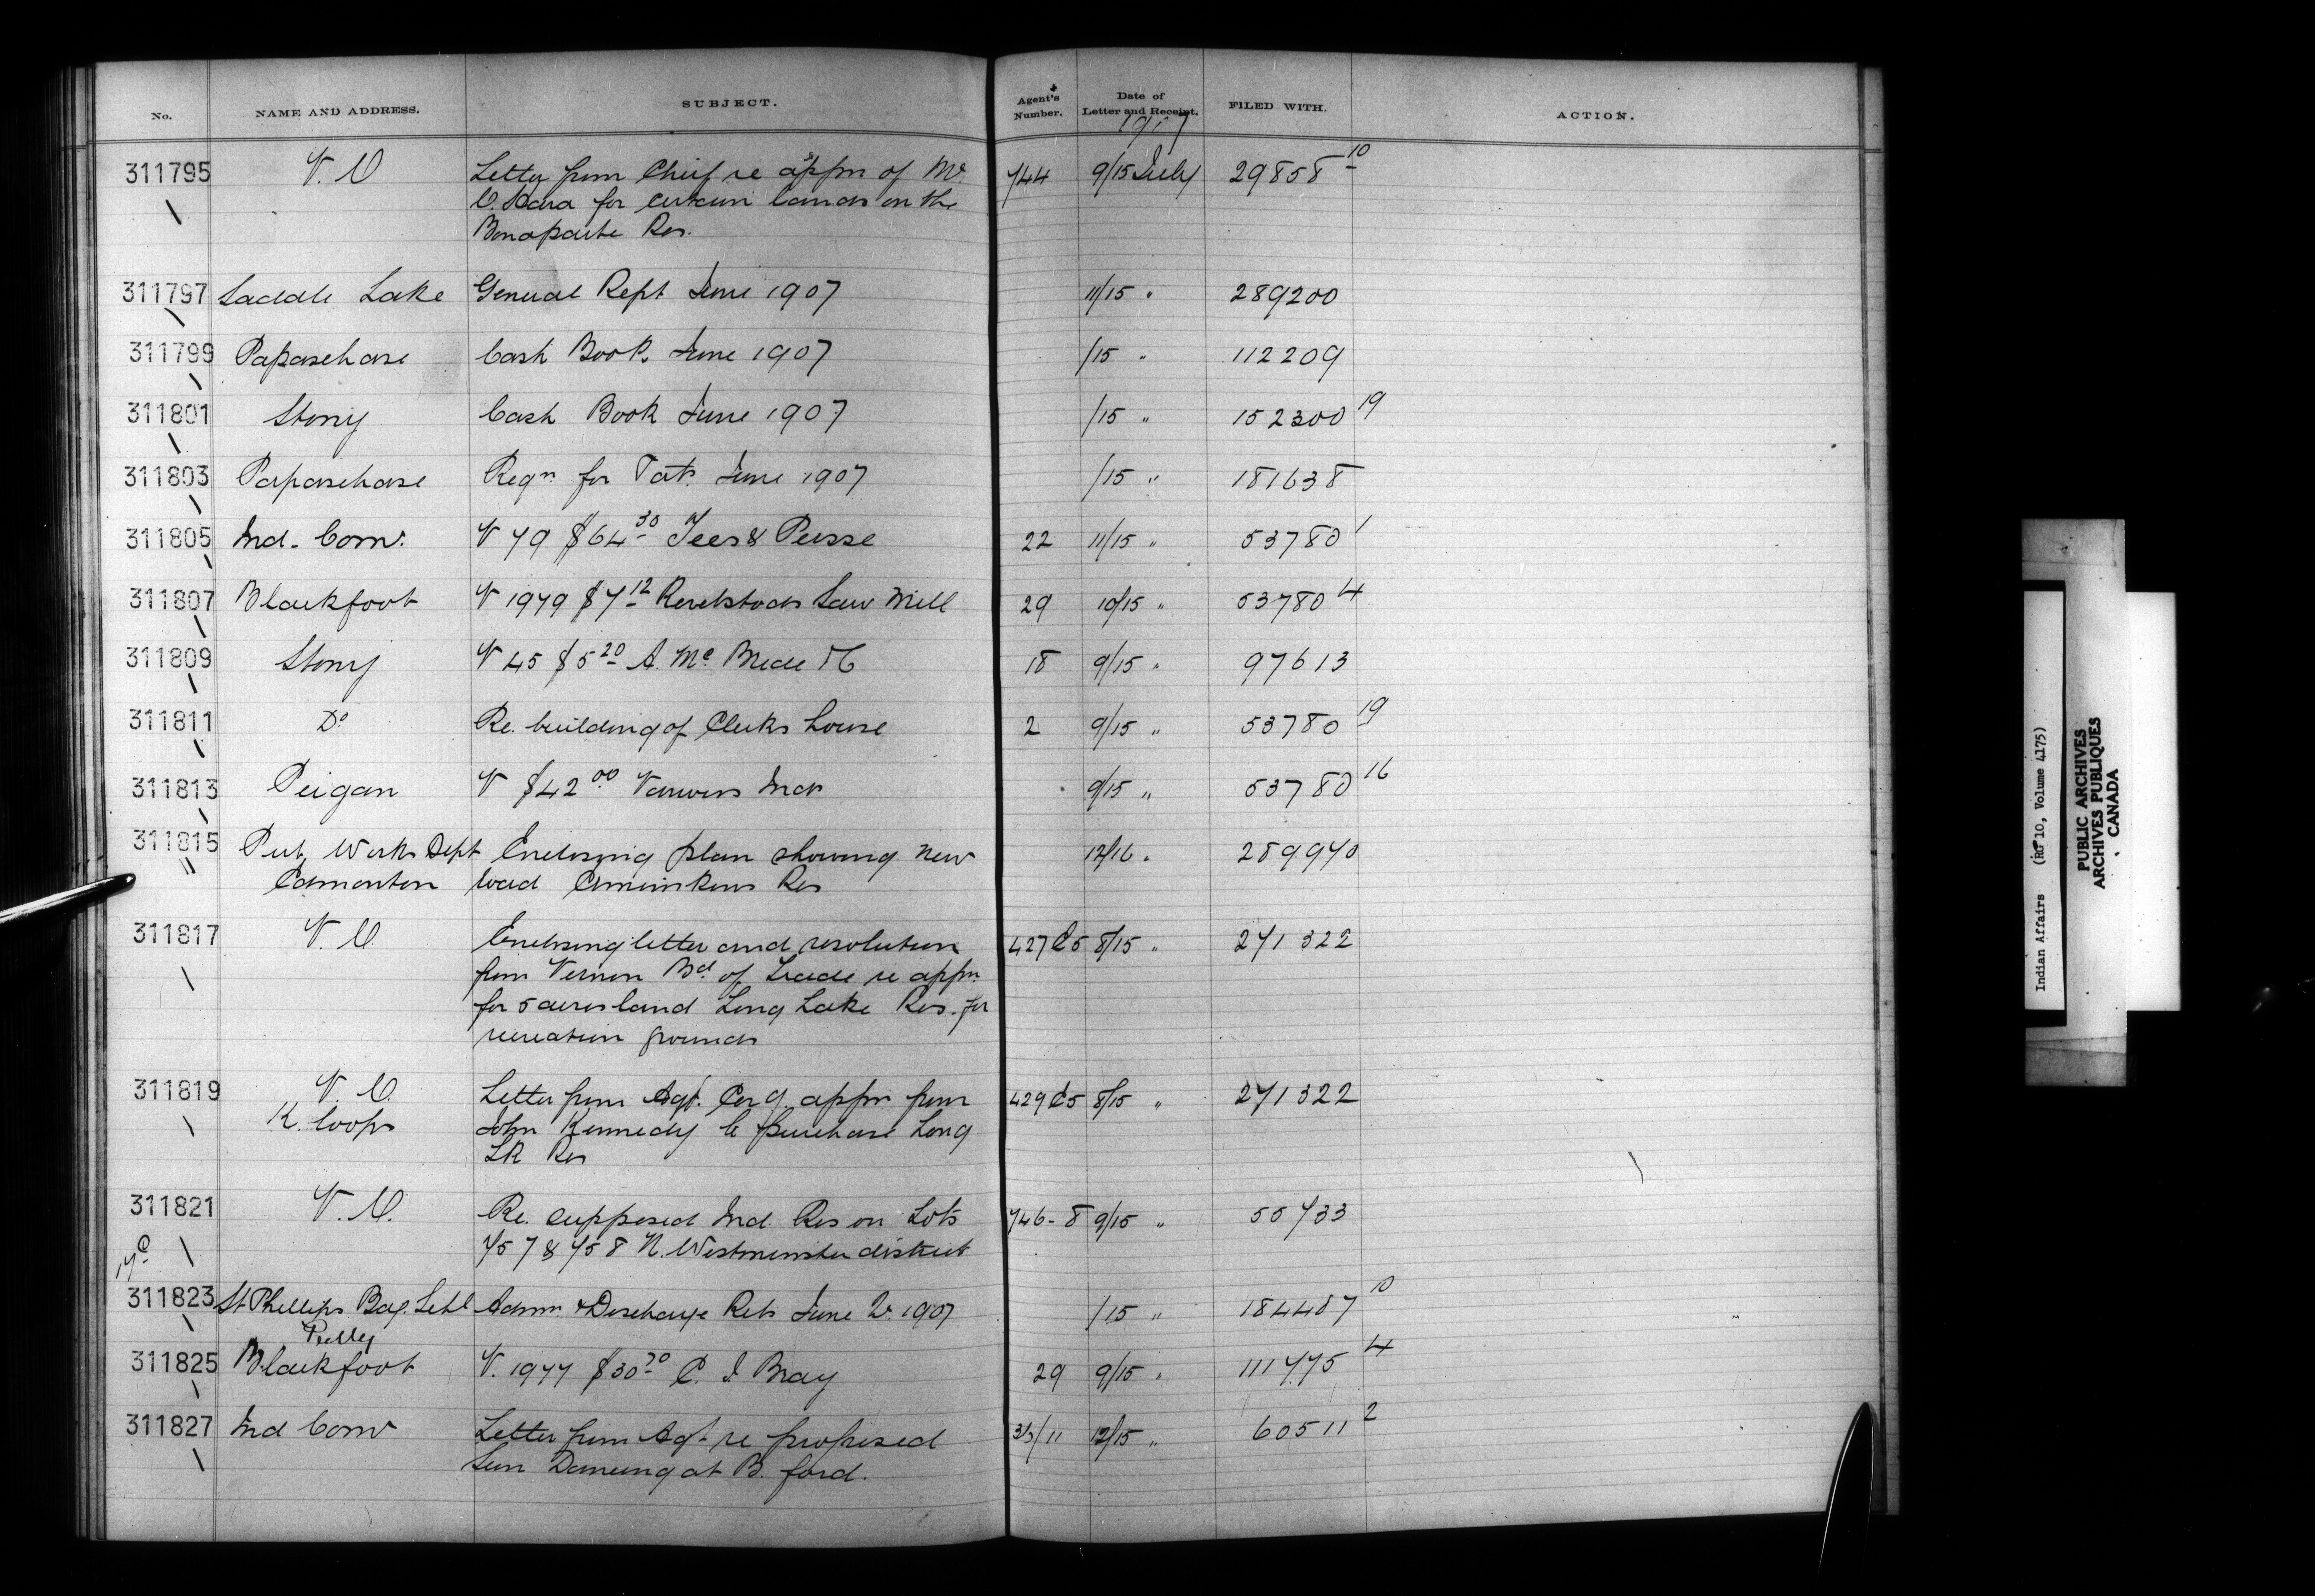 No. NAME AND ADDRESS. SUBJECT. Agent's Number. Date of Letter and Receipt. FILED WITH. ACTION.
1907
311795 V. O Letter from Chief re appn of Mr. 744 9/15 July 29858 10
O. Hara for certain lands on the
Bonaparte Res.
311797 Saddle Lake General Rept June 1907 11/15 " 289200
311799 Papaschase Cash Book June 1907 /15 " 112209
311801 Stony Cash Book June 1907 /15 " 152300 19
311803 Papaschase Reqn for June 1907 /15 " 181638
311805 Ind. Com. V 79 $64 30 Tees & Persse 22 11/15 " 53780 1
311807 Blackfoot V 1979 $7 12 Revelstoke Saw Mill 29 10/15 " 53780 4
311809 Stony V 45 $5 20 A. Mc Bride 18 9/15 " 97613
311811 Do Re. building of Clerks house 2 9/15 " 53780 19
311813 Peigan V $42 00 Various Inds 9/15 " 53780 16
311815 Pub. Works Dept Enclosing plan showing new 12/16 " 289940
Edmonton road Ermineskins Res
311817 V. O. Enclosing letter and resolution 427 C5 8/15 " 271322
from Vernon Bd of Trade re appn
for 5 acres land Long Lake Res. for
recreation grounds
311819 V. O. Letter from Agt. appn from 429 C5 8/15 " 271322
K. loops John Kennedy to purchase Long
Lk Res
311821 V. O. Re. supposed Ind. Res on Lots 746-8 9/15 " 55733
757 & 758 N. Westminster district
311823 St Phillips Bdg. Schl Admn & Discharge Rets June Qr. 1907 /15 " 184487 10
Pelly
311825 Blackfoot V. 1977 $30 70 C. I Bray 29 9/15 " 111775 4
311827 Ind Com Letter from Agt re proposed 3/3/11 12/15 " 60511 2
Sun Dancing at B. ford.
Indian Affairs (RG 10, Volume 4175)
PUBLIC ARCHIVES
ARCHIVES PUBLIQUES
CANADA